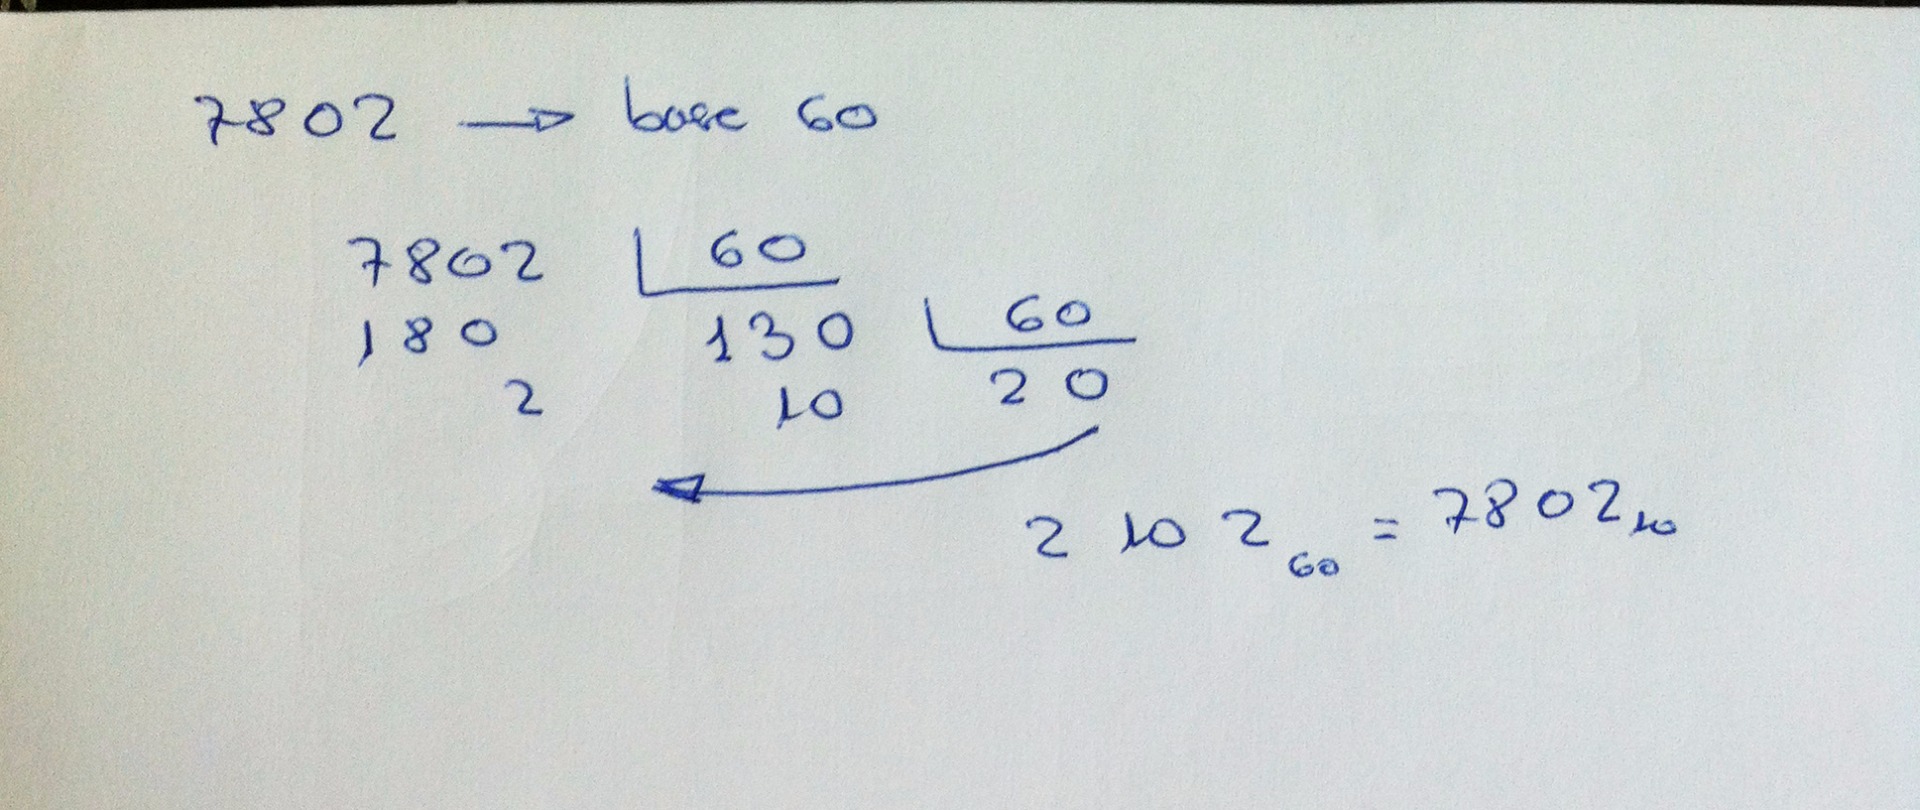 7802 → base 60
7802 60
180 130 60
2 10 20
2 10 2 60 = 7802 10